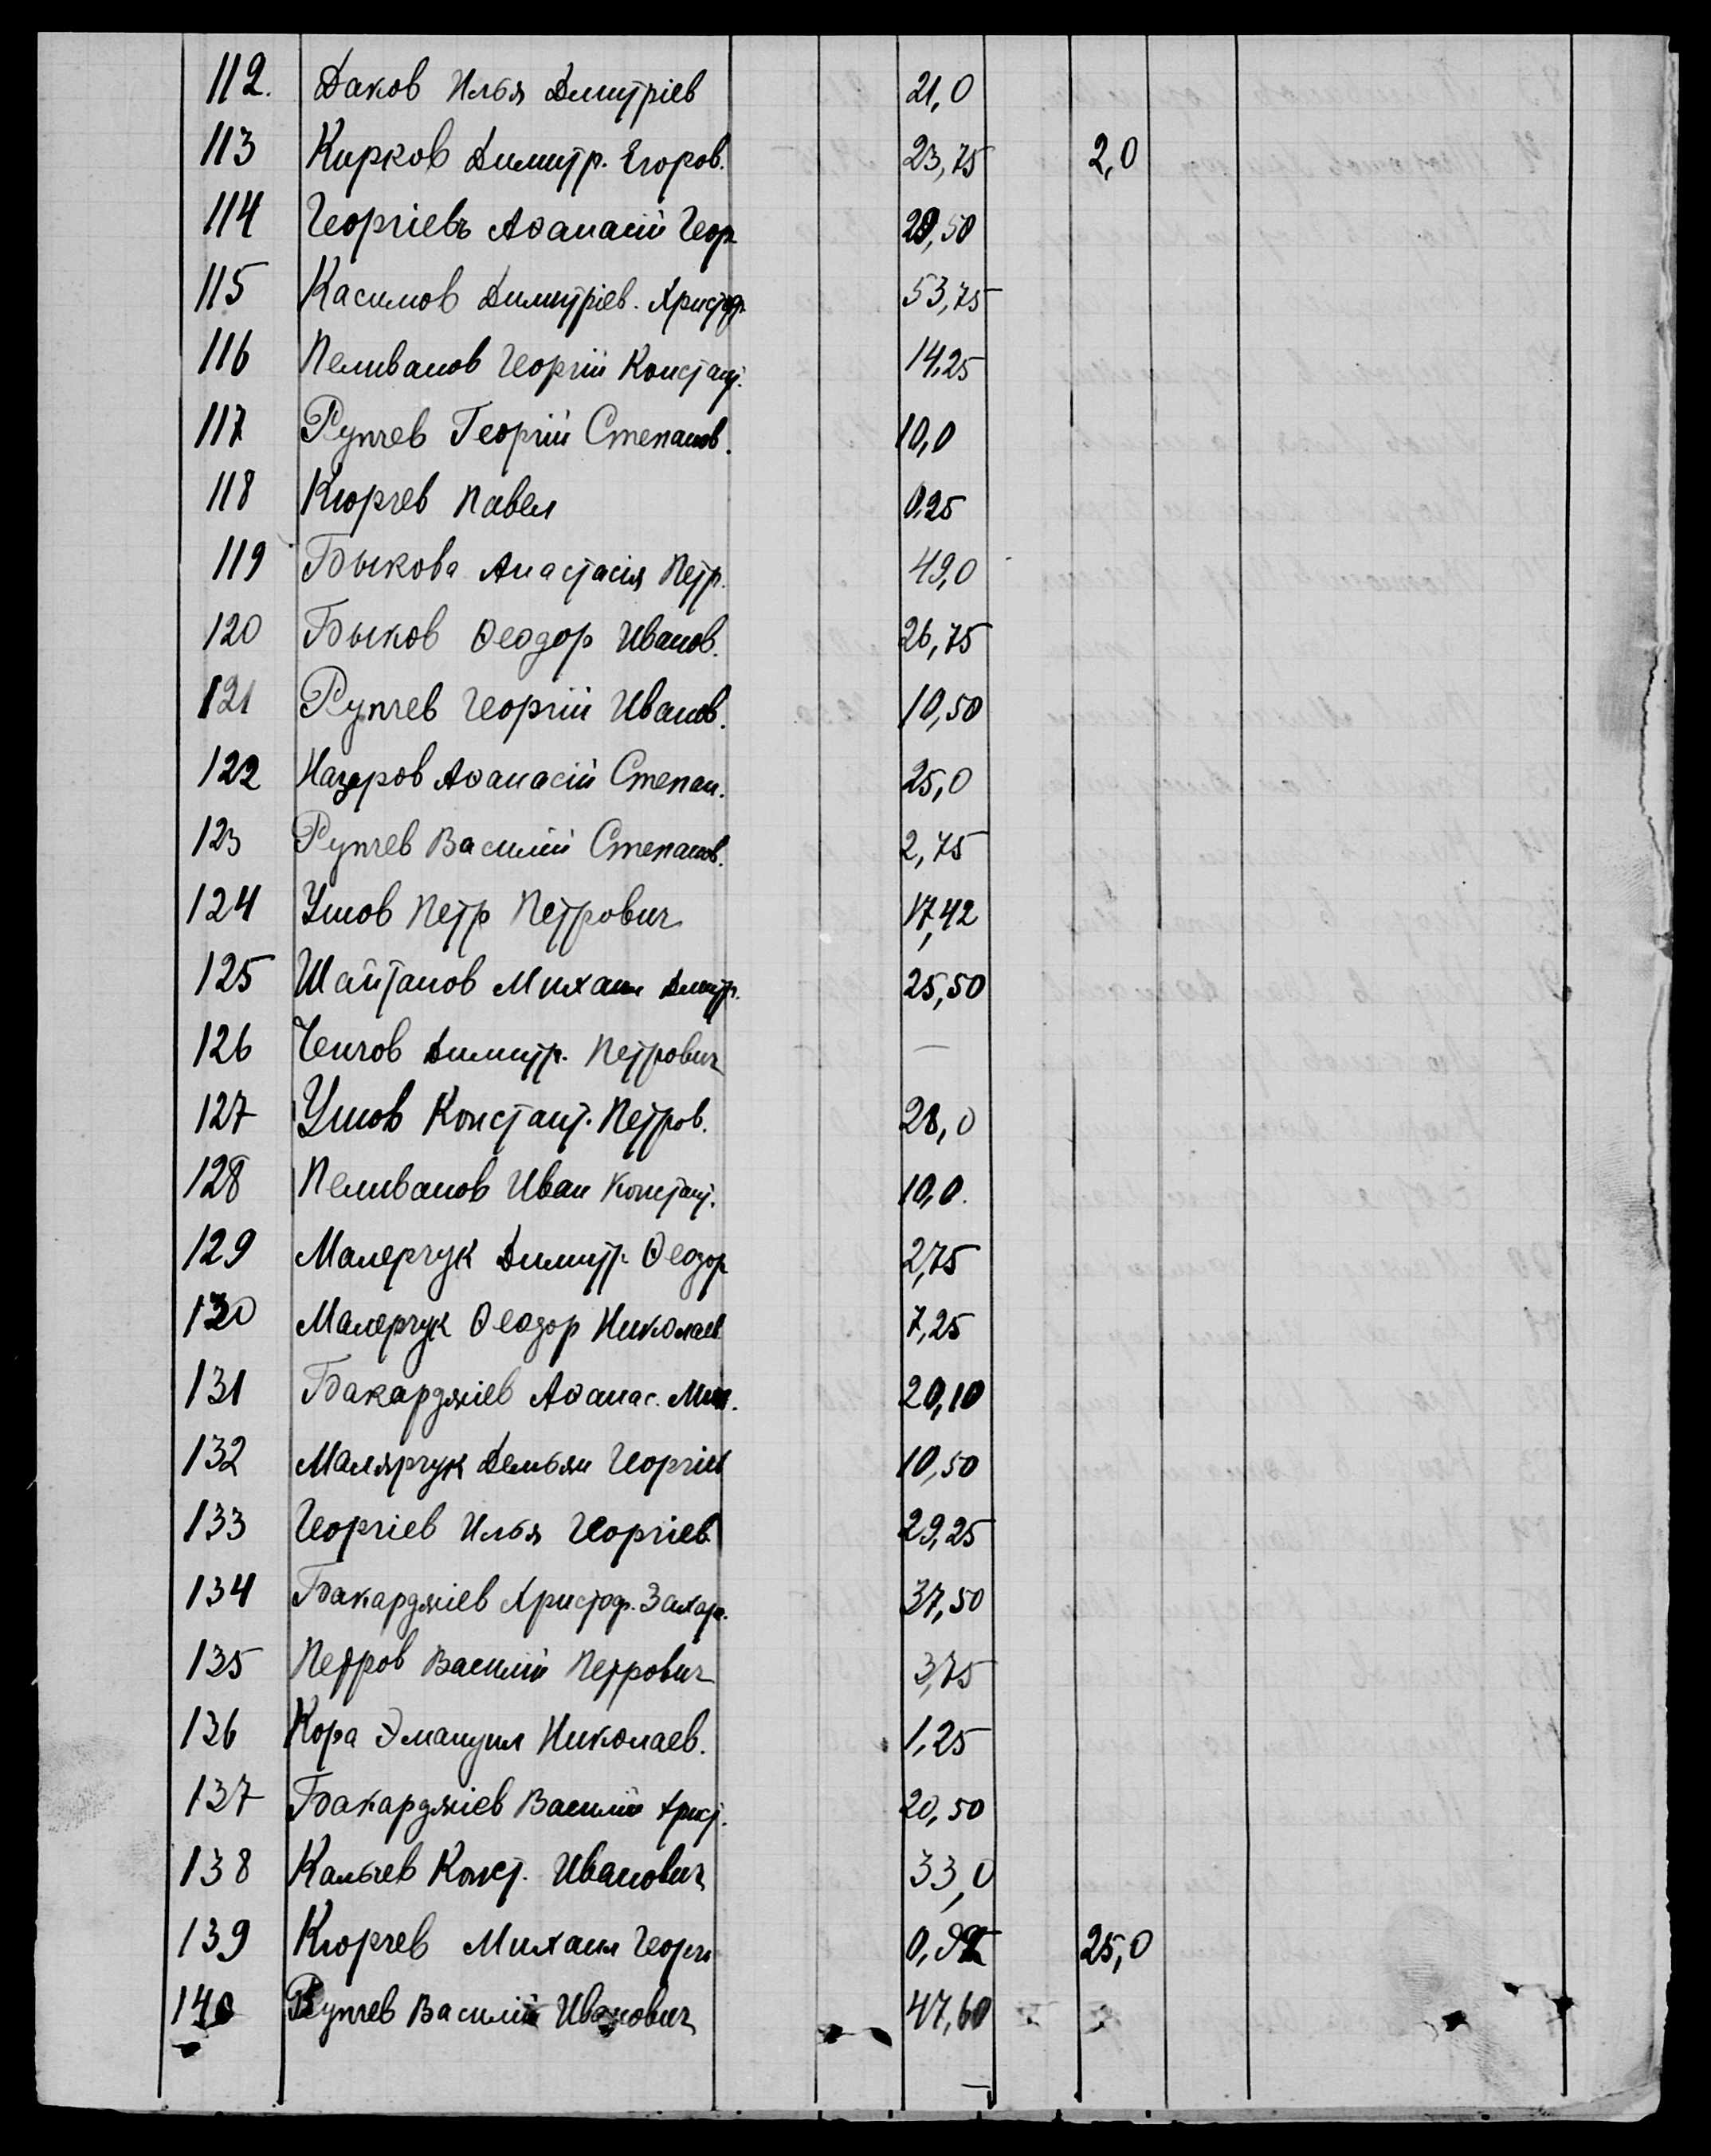 112. Даков Илья Дмитріев 21,0
113 Кирков Димитр. Егоров. 23,75 2,0
114 Георгіевъ Аѳанасій Геор 29,50
115 Касимов Димитріев. Христоф. 53,75
116 Пеливанов Георгій Констант. 14,25
117 Рупчев Георгій Степанов. 10,0
118 Кюрчев Павел 0,25
119 Быкова Анастасія Петр. 49,0
120 Быков Ѳеодор Иванов. 26,75
121 Рупчев Георгій Иванов. 10,50
122 Назаров Аѳанасій Степан. 25,0
123 Рупчев Василій Степанов. 2,75
124 Узов Петр Петрович 17,42
125 Шайтанов Михаил Дмитр. 25,50
126 Ченгов Димитр. Петрович —
127 Узов Констант. Петров. 28,0
128 Пеливанов Иван Констант. 10,0.
129 Малерчук Димитр. Ѳеодор 2,75
130 Малерчук Ѳеодор Николаев. 7,25
131 Бакарджіев Аѳанас. Мих. 20,10
132 Малярчук Демьян Георгіев 10,50
133 Георгіев Илья Георгіев. 29,25
134 Бакарджіев Христоф. Захар. 37,50
135 Петров Василій Петрович 3,75
136 Кора Эмануил Николаев. 1,25
137 Бакарджіев Василій Христ. 20,50
138 Кальчев Конст. Иванович 33,0
139 Кюрчев Михаил Георгі 25,0
140 Рупчев Василій Иванович 47,60
—